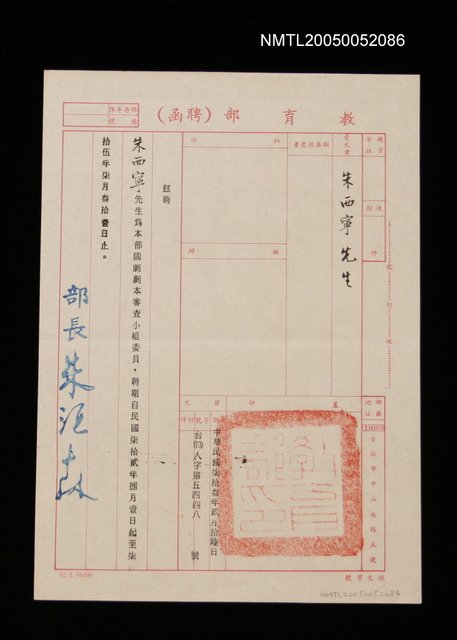 NMTL20050052086
教育部(聘函)
保存年限
號
機密等級
速別
受文者
朱西甯先生
副本收受者
示
批
辦
擬
文
發
印
蓋
號
訂
線
郵區地址
10000
台北市中山南路五號
中華民國柒拾叁年貳月拾陸日
字號
附件
台(73)人字第五四四八號
茲聘
朱西甯先生為本部國劇劇本審查小組委員，聘期自民國柒拾貳年捌月壹日起至柒
拾伍年柒月叁拾壹日止。
部長 朱滙森
72. 2. 10,000
收文字號
NMTL20050052086